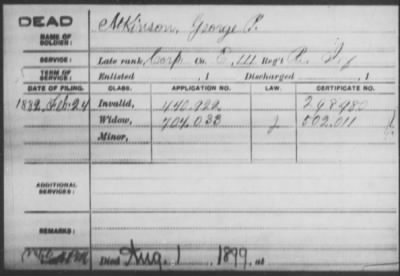 DEAD
NAME OF SOLDIER: Atkinson, George P.
SERVICE: Late rank, Corp Co. E, 111 Reg't
TERM OF SERVICE: Enlisted , 1 Discharged , 1
DATE OF FILING. CLASS. APPLICATION NO. LAW. CERTIFICATE NO.
1882, Feb. 24 Invalid, 440.922 298.980
Widow, 704.033 J 502.011
Minor,
ADDITIONAL SERVICES:
REMARKS:
Died Aug. 1, 1899, at